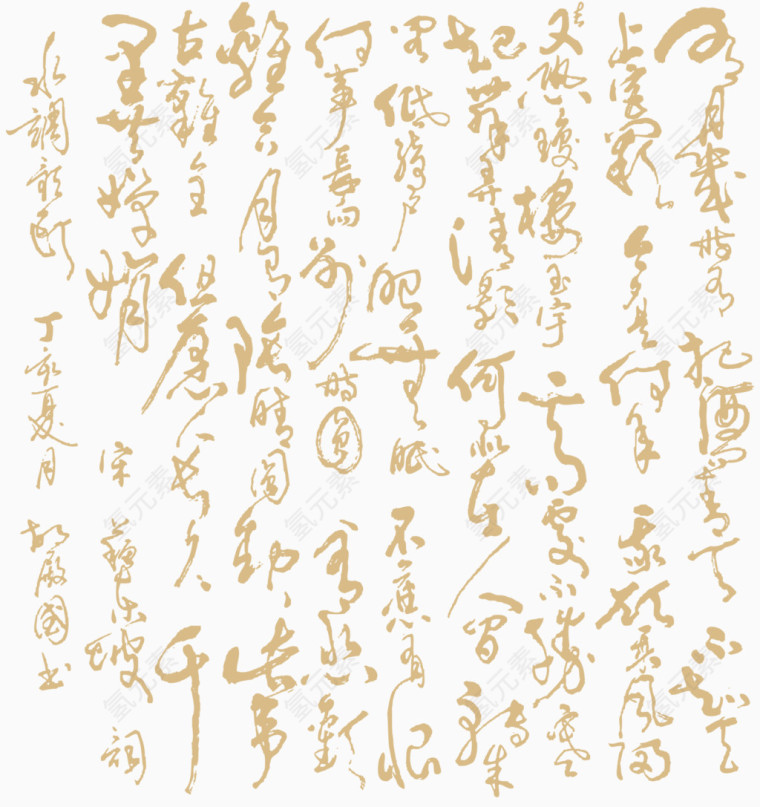 明月幾時有把酒問青天不知天
上宮闕今夕是何年我欲乘風歸
去又恐瓊樓玉宇高處不勝寒
起舞弄清影何似在人間轉朱
閣低綺戶照無眠不應有恨
何事長向別時圓人有悲歡
離合月有陰晴圓缺此事
古難全但願人長久千
里共嬋娟 宋蘇東坡詞
水調歌頭 丁亥夏月 胡殿國書
氢元素